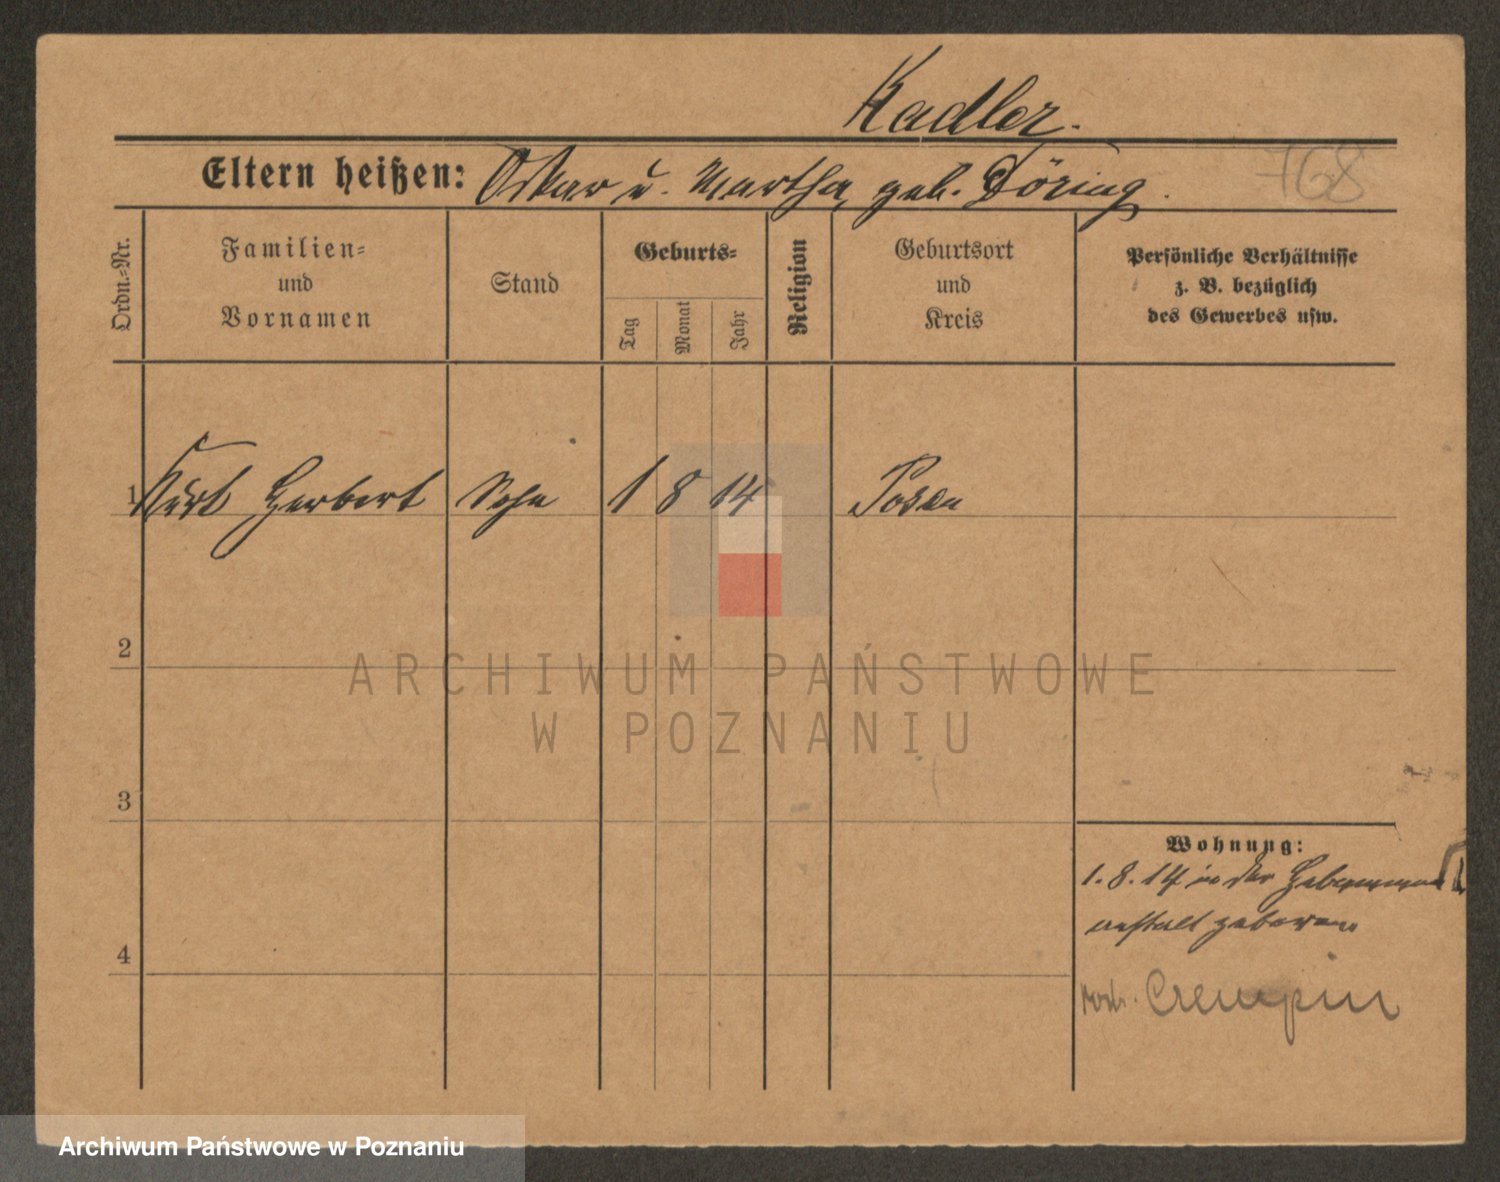 Kadler.
Eltern heißen: Oskar u. Martha, geb. Döring.
768
Ordn.-Nr.
Familien-
und
Vornamen
Stand
Geburts-
Tag
Monat
Jahr
Religion
Geburtsort
und
Kreis
Persönliche Verhältnisse
z. B. bezüglich
des Gewerbes usw.
1 Kurt Herbert Sohn 1 8 14 Posen
2
ARCHIWUM PAŃSTWOWE
W POZNANIU
3
4
Wohnung:
1. 8. 14 in der Hebammen
anstalt geboren
Crempin
Archiwum Państwowe w Poznaniu